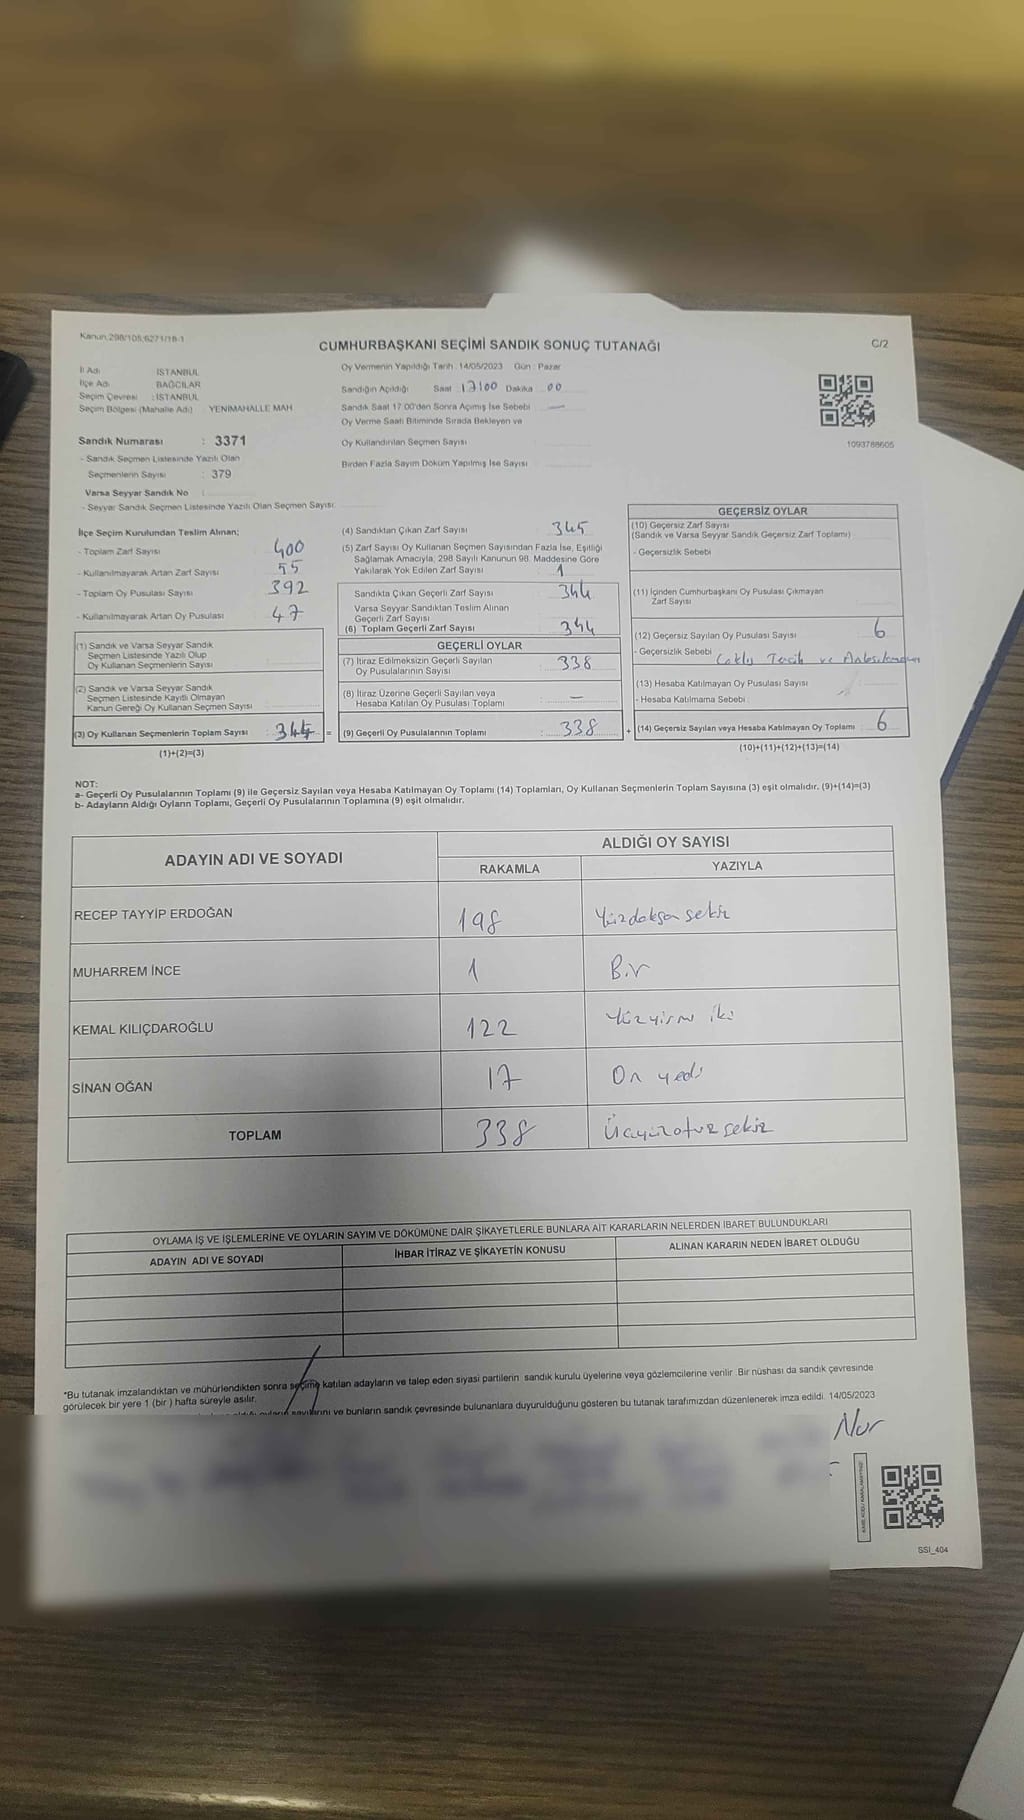 Kanun:298/105;6271/18-1
CUMHURBAŞKANI SEÇİMİ SANDIK SONUÇ TUTANAĞI
C/2
İl Adı İSTANBUL
İlçe Adı BAĞCILAR
Seçim Çevresi : İSTANBUL
Seçim Bölgesi (Mahalle Adı) : YENİMAHALLE MAH
Oy Vermenin Yapıldığı Tarih : 14/05/2023 Gün : Pazar
Sandığın Açıldığı Saat : 17:00 Dakika : 00
Sandık Saat 17:00'den Sonra Açımış İse Sebebi : —
Oy Verme Saati Bitiminde Sırada Bekleyen ve
Oy Kullandırılan Seçmen Sayısı
Birden Fazla Sayım Döküm Yapılmış İse Sayısı
1093788605
Sandık Numarası : 3371
- Sandık Seçmen Listesinde Yazılı Olan
Seçmenlerin Sayısı : 379
Varsa Seyyar Sandık No :
- Seyyar Sandık Seçmen Listesinde Yazılı Olan Seçmen Sayısı:
İlçe Seçim Kurulundan Teslim Alınan;
- Toplam Zarf Sayısı 400
- Kullanılmayarak Artan Zarf Sayısı 55
- Toplam Oy Pusulası Sayısı 392
- Kullanılmayarak Artan Oy Pusulası 47
(1) Sandık ve Varsa Seyyar Sandık
Seçmen Listesinde Yazılı Olup
Oy Kullanan Seçmenlerin Sayısı
(2) Sandık ve Varsa Seyyar Sandık
Seçmen Listesinde Kayıtlı Olmayan
Kanun Gereği Oy Kullanan Seçmen Sayısı :
(3) Oy Kullanan Seçmenlerin Toplam Sayısı : 344 =
(1)+(2)=(3)
(4) Sandıktan Çıkan Zarf Sayısı 345
(5) Zarf Sayısı Oy Kullanan Seçmen Sayısından Fazla İse, Eşitliği
Sağlamak Amacıyla; 298 Sayılı Kanunun 98. Maddesine Göre
Yakılarak Yok Edilen Zarf Sayısı 1
Sandıkta Çıkan Geçerli Zarf Sayısı : 344
Varsa Seyyar Sandıktan Teslim Alınan
Geçerli Zarf Sayısı
(6) Toplam Geçerli Zarf Sayısı : 344
GEÇERLİ OYLAR
(7) İtiraz Edilmeksizin Geçerli Sayılan
Oy Pusulalarının Sayısı : 338
(8) İtiraz Üzerine Geçerli Sayılan veya
Hesaba Katılan Oy Pusulası Toplamı : —
(9) Geçerli Oy Pusulalarının Toplamı : 338 +
GEÇERSİZ OYLAR
(10) Geçersiz Zarf Sayısı
(Sandık ve Varsa Seyyar Sandık Geçersiz Zarf Toplamı)
- Geçersizlik Sebebi
(11) İçinden Cumhurbaşkanı Oy Pusulası Çıkmayan
Zarf Sayısı
(12) Geçersiz Sayılan Oy Pusulası Sayısı 6
- Geçersizlik Sebebi : Çoklu Tercih ve
(13) Hesaba Katılmayan Oy Pusulası Sayısı
- Hesaba Katılmama Sebebi :
(14) Geçersiz Sayılan veya Hesaba Katılmayan Oy Toplamı : 6
(10)+(11)+(12)+(13)=(14)
NOT:
a- Geçerli Oy Pusulasının Toplamı (9) ile Geçersiz Sayılan veya Hesaba Katılmayan Oy Toplamı (14) Toplamları, Oy Kullanan Seçmenlerin Toplam Sayısına (3) eşit olmalıdır. (9)+(14)=(3)
b- Adayların Aldığı Oyların Toplamı, Geçerli Oy Pusulalarının Toplamına (9) eşit olmalıdır.
ADAYIN ADI VE SOYADI
ALDIĞI OY SAYISI
RAKAMLA YAZIYLA
RECEP TAYYİP ERDOĞAN 198 Yüzdoksansekiz
MUHARREM İNCE 1 Bir
KEMAL KILIÇDAROĞLU 122 Yüzyirmi iki
SİNAN OĞAN 17 On yedi
TOPLAM 338 Üçyüzotuzsekiz
OYLAMA İŞ VE İŞLEMLERİNE VE OYLARIN SAYIM VE DÖKÜMÜNE DAİR ŞİKAYETLERLE BUNLARA AİT KARARLARIN NELERDEN İBARET BULUNDUKLARI
ADAYIN ADI VE SOYADI İHBAR İTİRAZ VE ŞİKAYETİN KONUSU ALINAN KARARIN NEDEN İBARET OLDUĞU
*Bu tutanak imzalandıktan ve mühürlendikten sonra seçime katılan adayların ve talep eden siyasi partilerin sandık kurulu üyelerine veya gözlemcilerine verilir. Bir nüshası da sandık çevresinde
görülecek bir yere 1 (bir ) hafta süreyle asılır.
ve bunların sandık çevresinde bulunanlara duyurulduğunu gösteren bu tutanak tarafımızdan düzenlenerek imza edildi. 14/05/2023
Nur
SSI_404